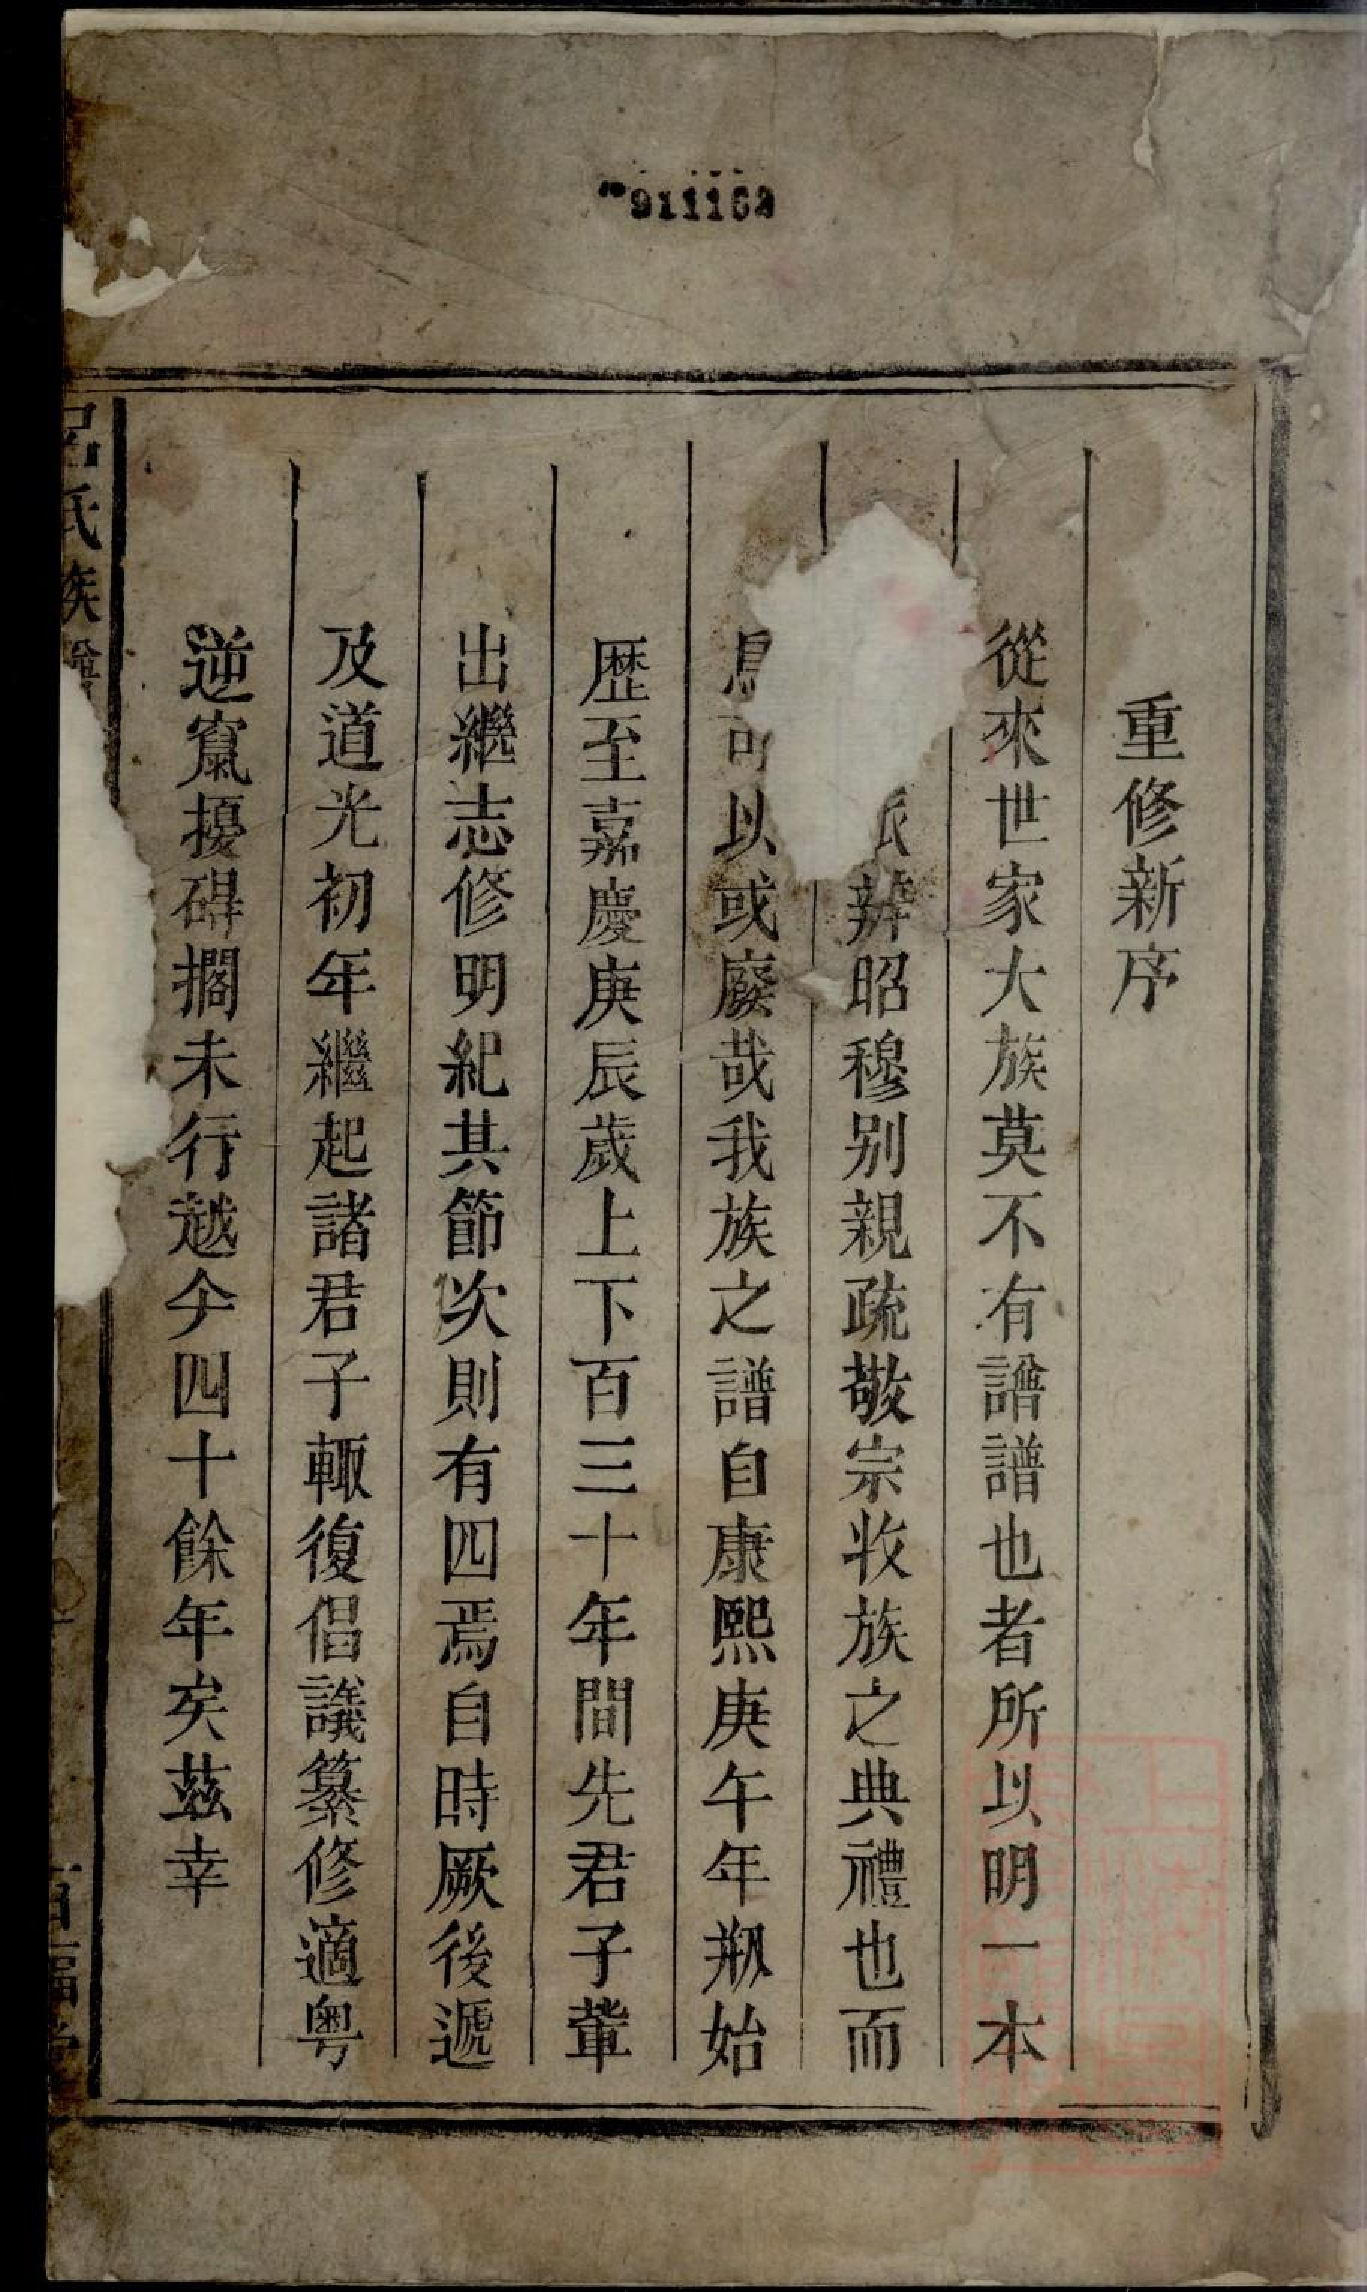 911162
重修新序
從來世家大族莫不有譜譜也者所以明一本
派辨昭穆别親疏敬宗收族之典禮也而
可以或廢哉我族之譜自康熙庚午年刱始
歷至嘉慶庚辰歲上下百三十年間先君子輩
出繼志修明紀其節次則有四焉自時厥後遞
及道光初年繼起諸君子輙復倡議纂修適粵
逆竄擾碍擱未行越今四十餘年矣茲幸
呂氏族譜